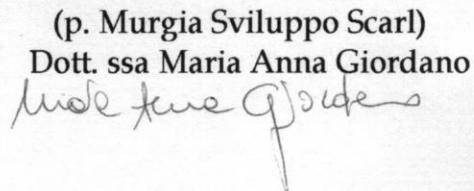 (p. Murgia Sviluppo Scarl)
Dott. ssa Maria Anna Giordano
Maria Anna Giordano